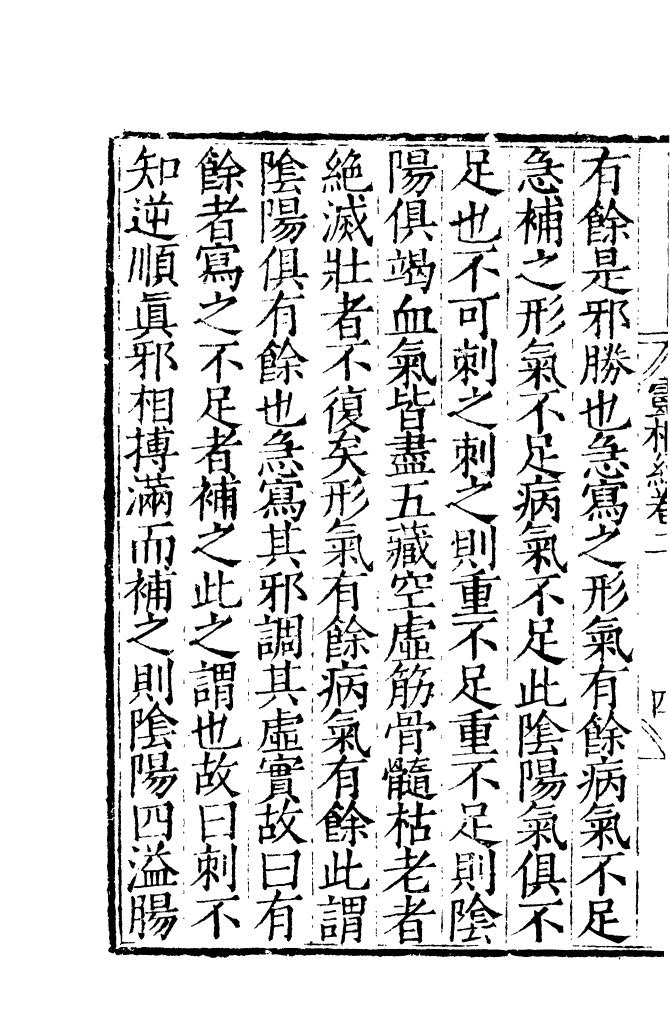 有餘是邪勝也急寫之形氣有餘病氣不足
急補之形氣不足病氣不足此陰陽氣俱不
足也不可刺之刺之則重不足重不足則陰
陽俱竭血氣皆盡五藏空虛筋骨髓枯老者
絶滅壯者不復矣形氣有餘病氣有餘此謂
陰陽俱有餘也急寫其邪調其虛實故曰有
餘者寫之不足者補之此之謂也故曰刺不
知逆順眞邪相搏滿而補之則陰陽四溢腸